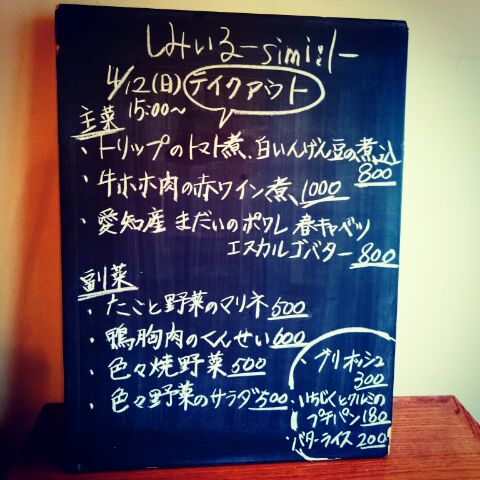 しみいる-simiil-
4/12(日) テイクアウト
15:00~
主菜
・トリップのトマト煮、白いんげん豆の煮込
800
・牛ホホ肉の赤ワイン煮 1000
・愛知産 まだいのポワレ 春キャベツ
エスカルゴバター 800
副菜
・たこと野菜のマリネ 500
・鴨胸肉のくんせい 600
・色々焼野菜 500
・色々野菜のサラダ 500
・ブリオッシュ
300
・いちじくとクルミの
プチパン 180
・バターライス 200